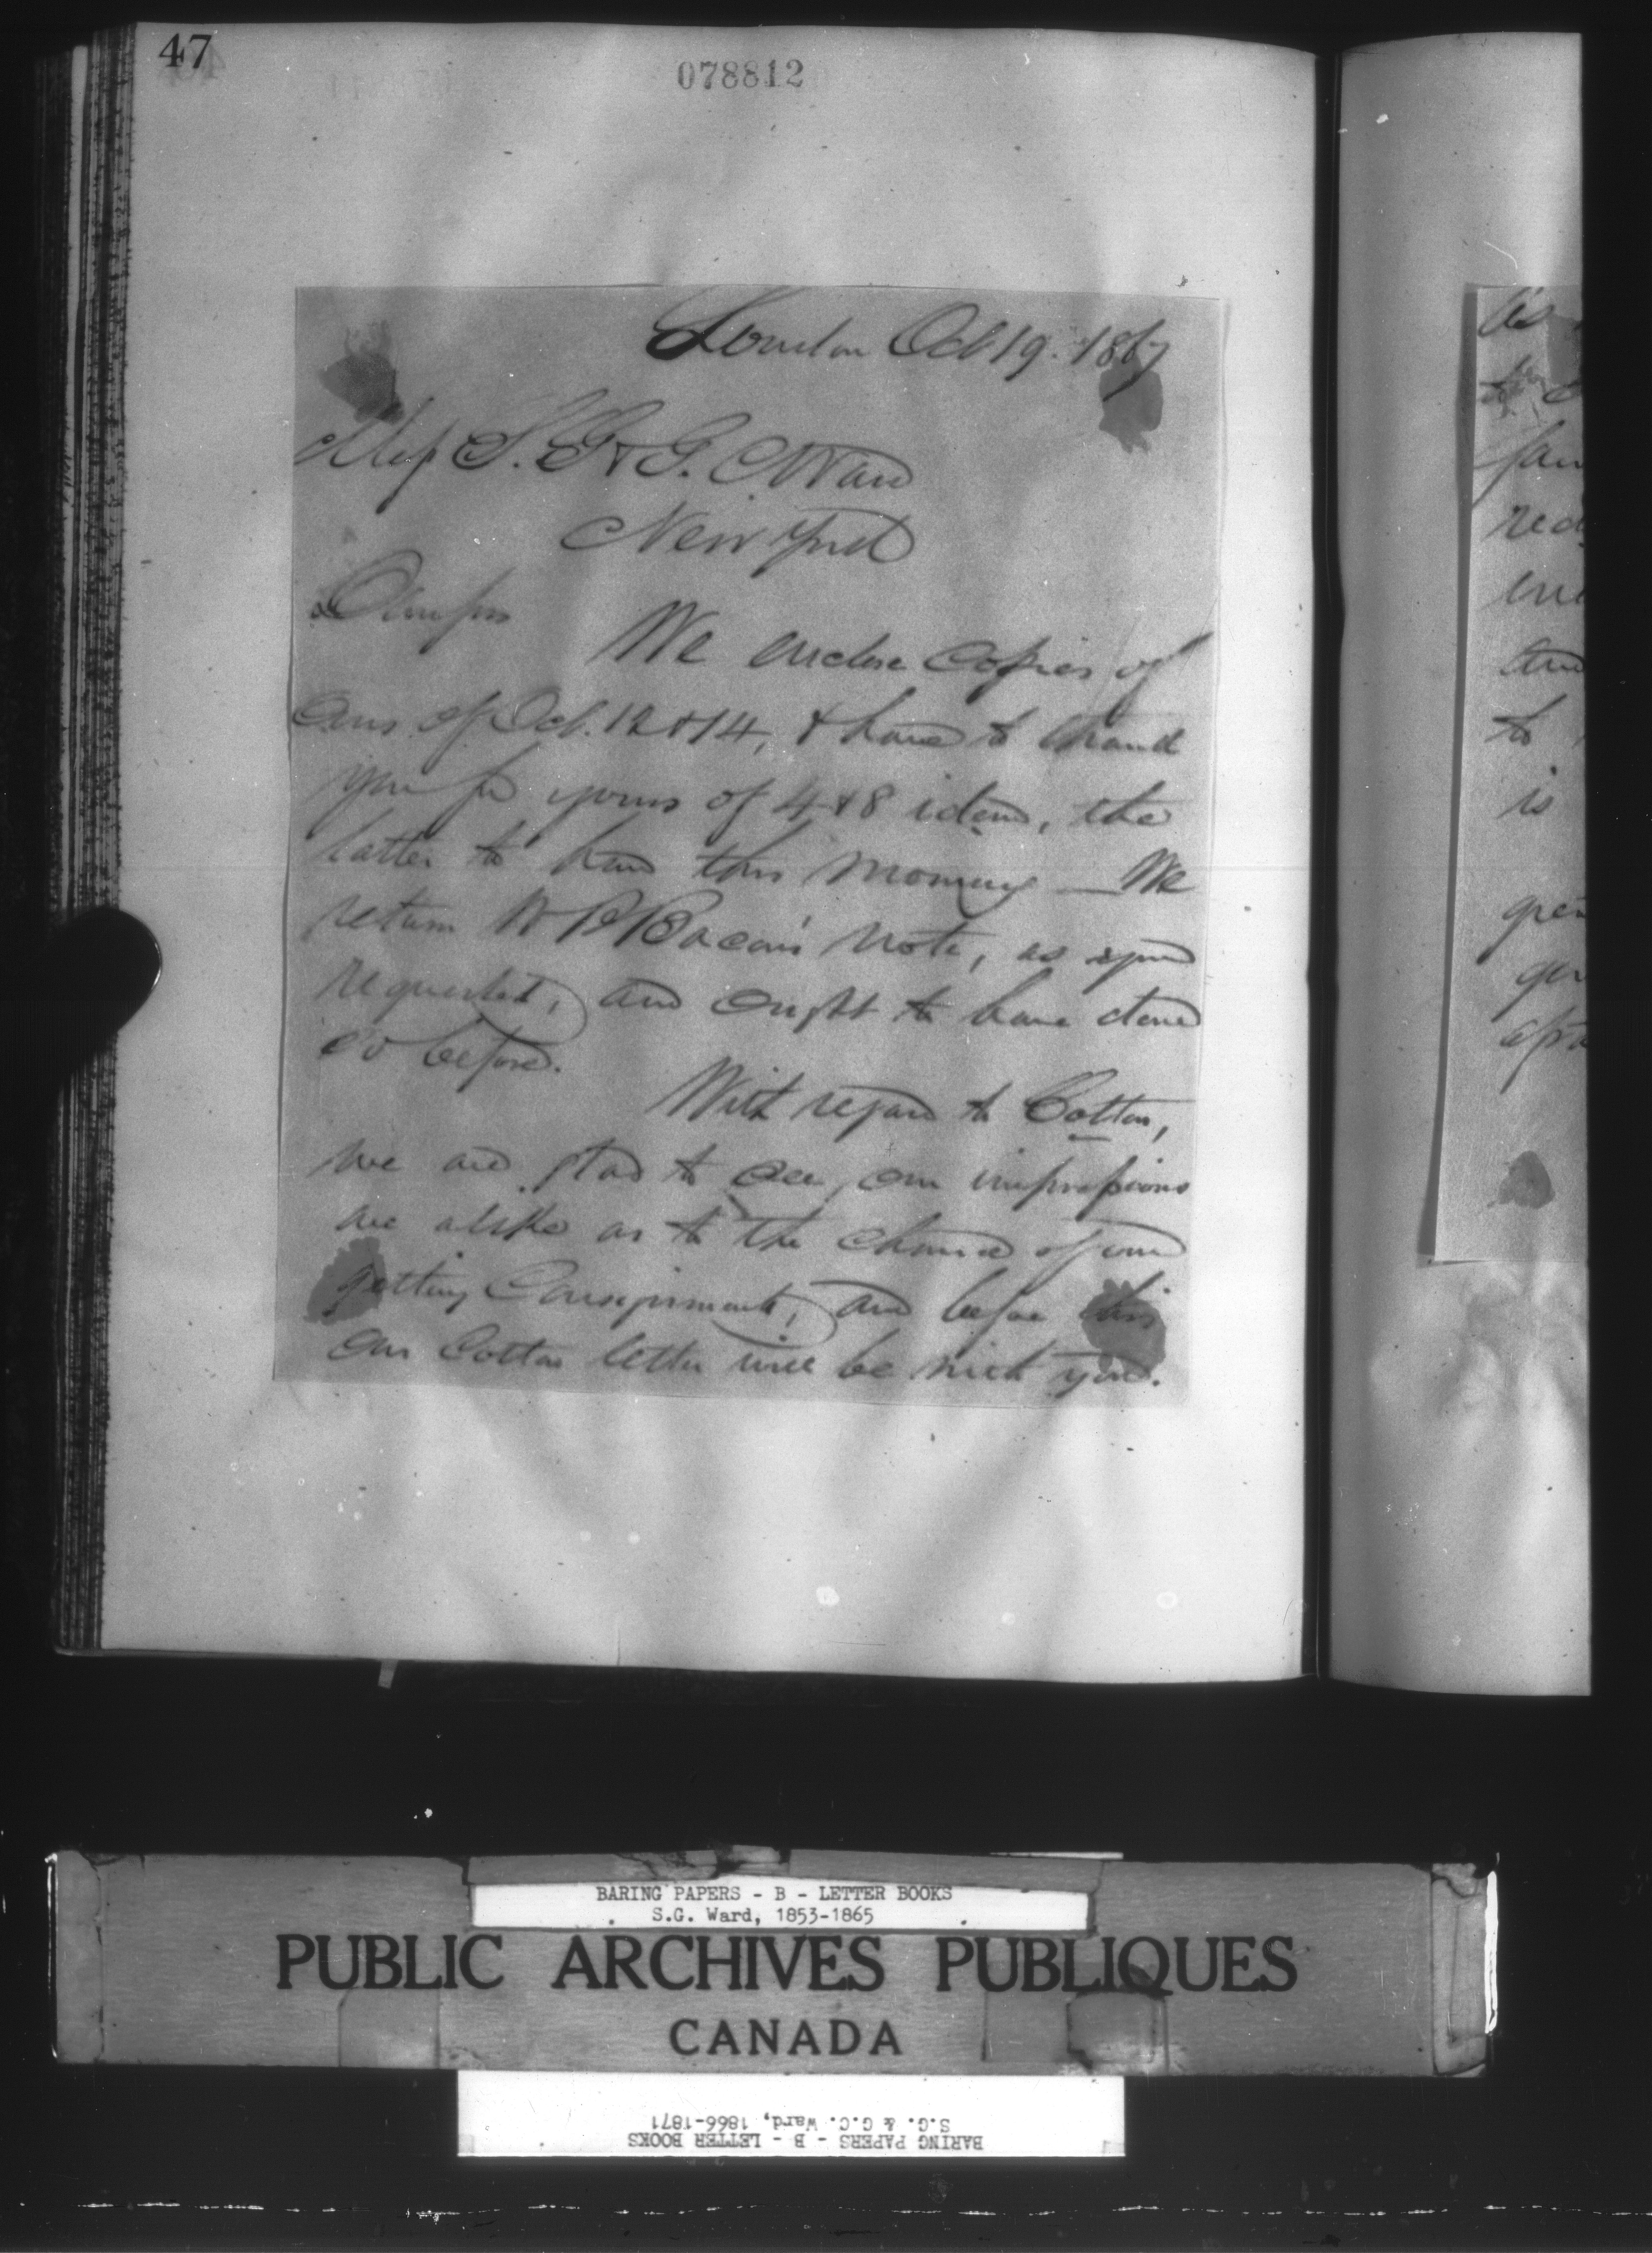 47
078812
London Oct 19. 1867
Mess S. G & G. C Ward
New York
Dear Sirs
We enclose Copies of
ours of Oct. 12 & 14, & have to thank
you for yours of 4 & 8 idem, the
latter to hand this morning — We
return W B Bacon's note, as you
requested, and ought to have done
so before.
With regard to Cotton,
we are glad to see our impressions
are alike as to the chance of our
getting Consignments, and before this
our Cotton letter will be with you.
as
fav
red
and
to
is
BARING PAPERS - B - LETTER BOOKS
S.G. Ward, 1853-1865
PUBLIC ARCHIVES PUBLIQUES
CANADA
BARING PAPERS - B - LETTER BOOKS
S.G. & G.C. Ward, 1866-1871